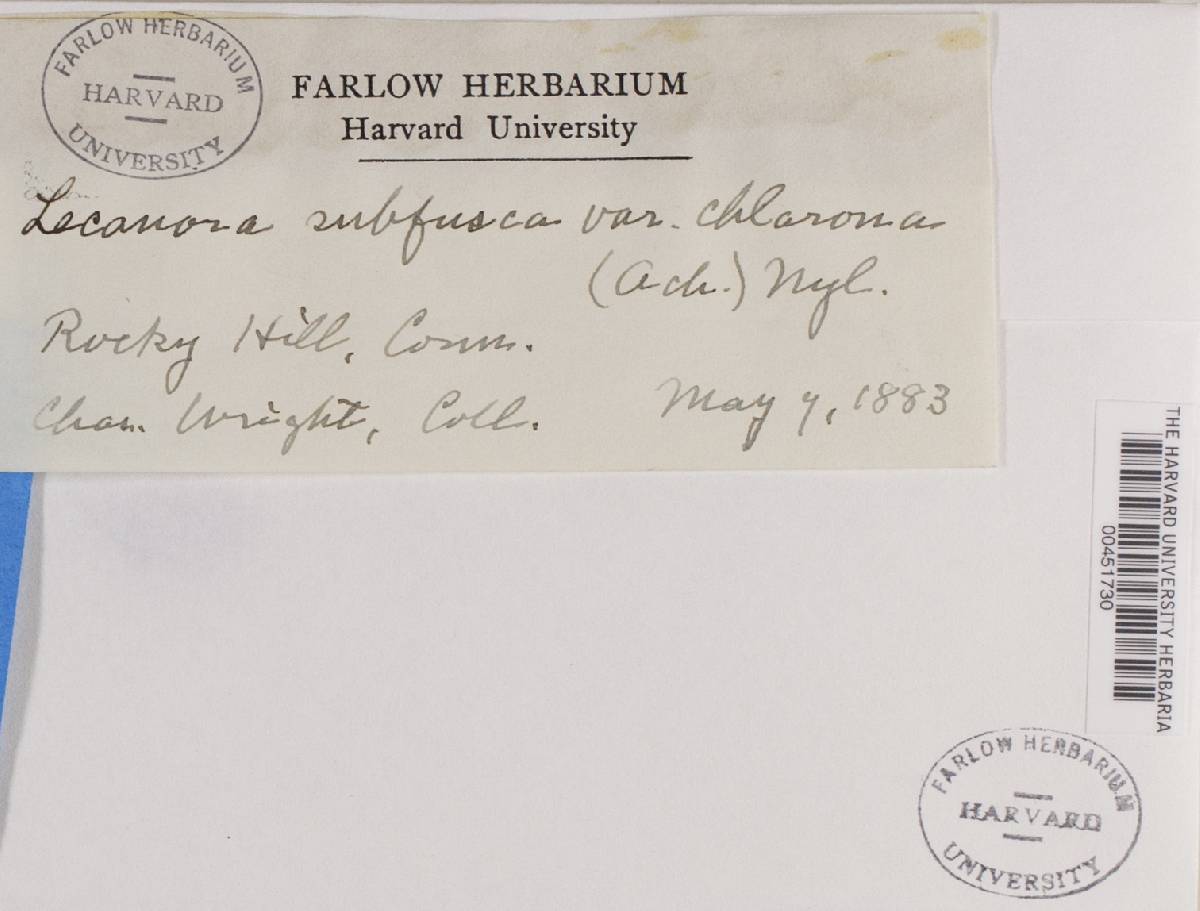 FARLOW HERBARIUM
HARVARD
UNIVERSITY
FARLOW HERBARIUM
Harvard University
Lecanora subfusca var. chlarona
(Ach.) Nyl.
Rocky Hill, Conn.
Chas. Wright, Coll. May 7, 1883
THE HARVARD UNIVERSITY HERBARIA
00451730
FARLOW HERBARIUM
HARVARD
UNIVERSITY